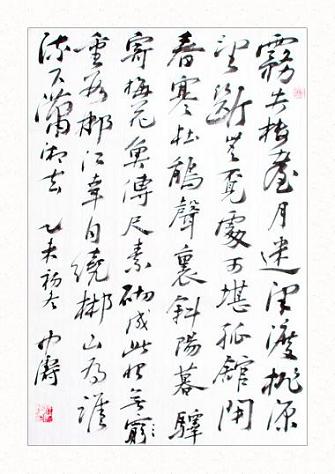 霧失樓臺月迷津渡桃源
望斷無覓處可堪孤館閉
春寒杜鵑聲裏斜陽暮驛
寄梅花魚傳尺素砌成此恨無窮
重數郴江幸自繞郴山為誰
流下瀟湘去 乙未初冬